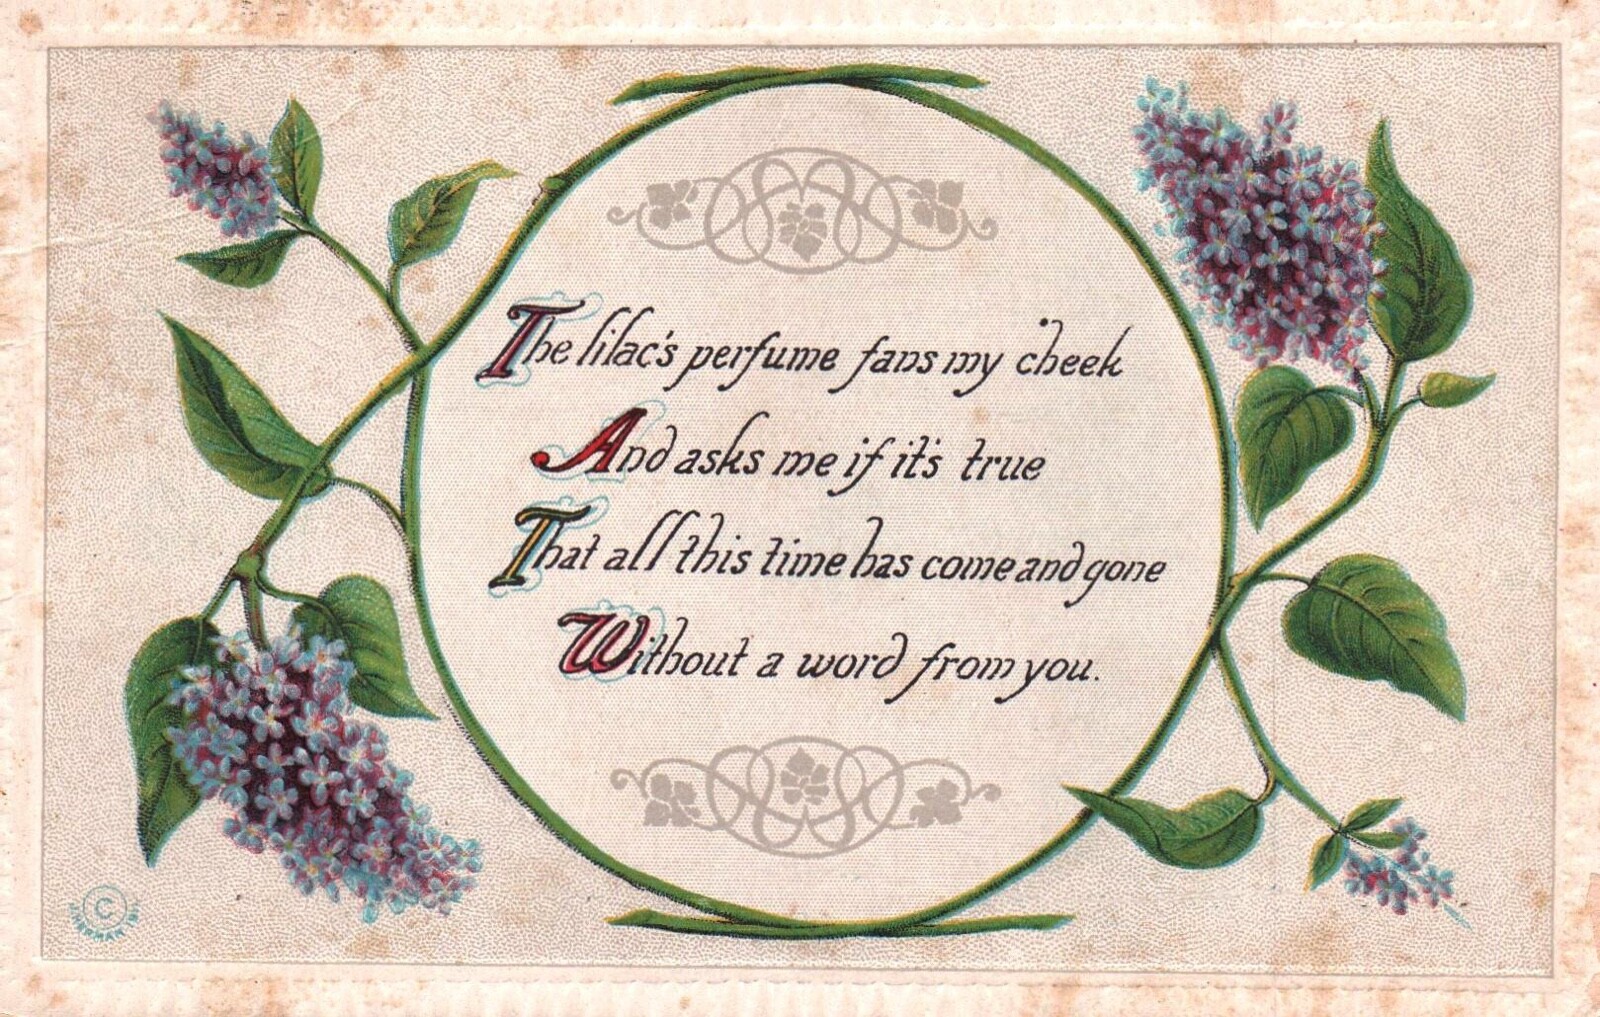 The lilac's perfume fans my cheek
And asks me if it's true
That all this time has come and gone
Without a word from you.
©
J. HERMAN 1911